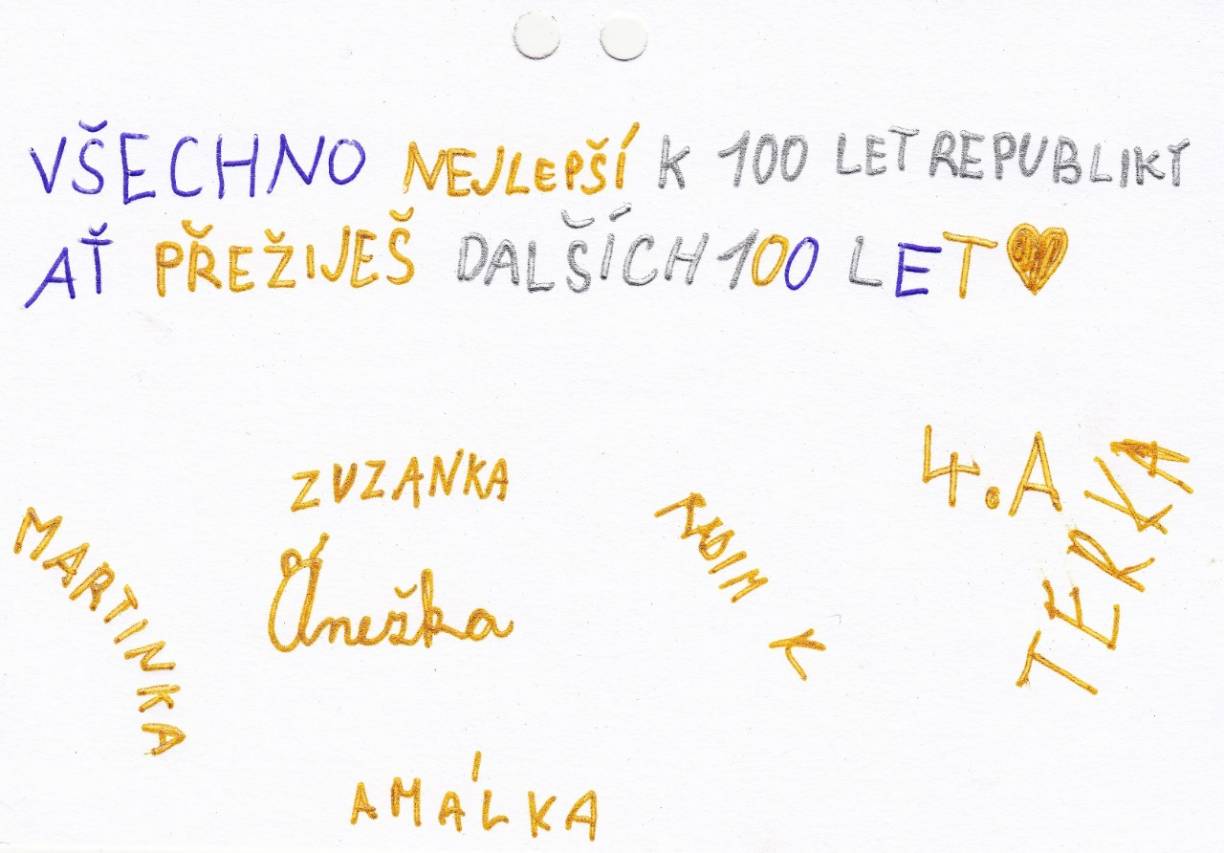 VŠECHNO NEJLEPŠÍ K 100 LET REPUBLIKY
AŤ PŘEŽIJEŠ DALŠÍCH 100 LET
4.A
ZUZANKA
TERKA
RADIM K
MARTINKA
Anežka
AMÁLKA